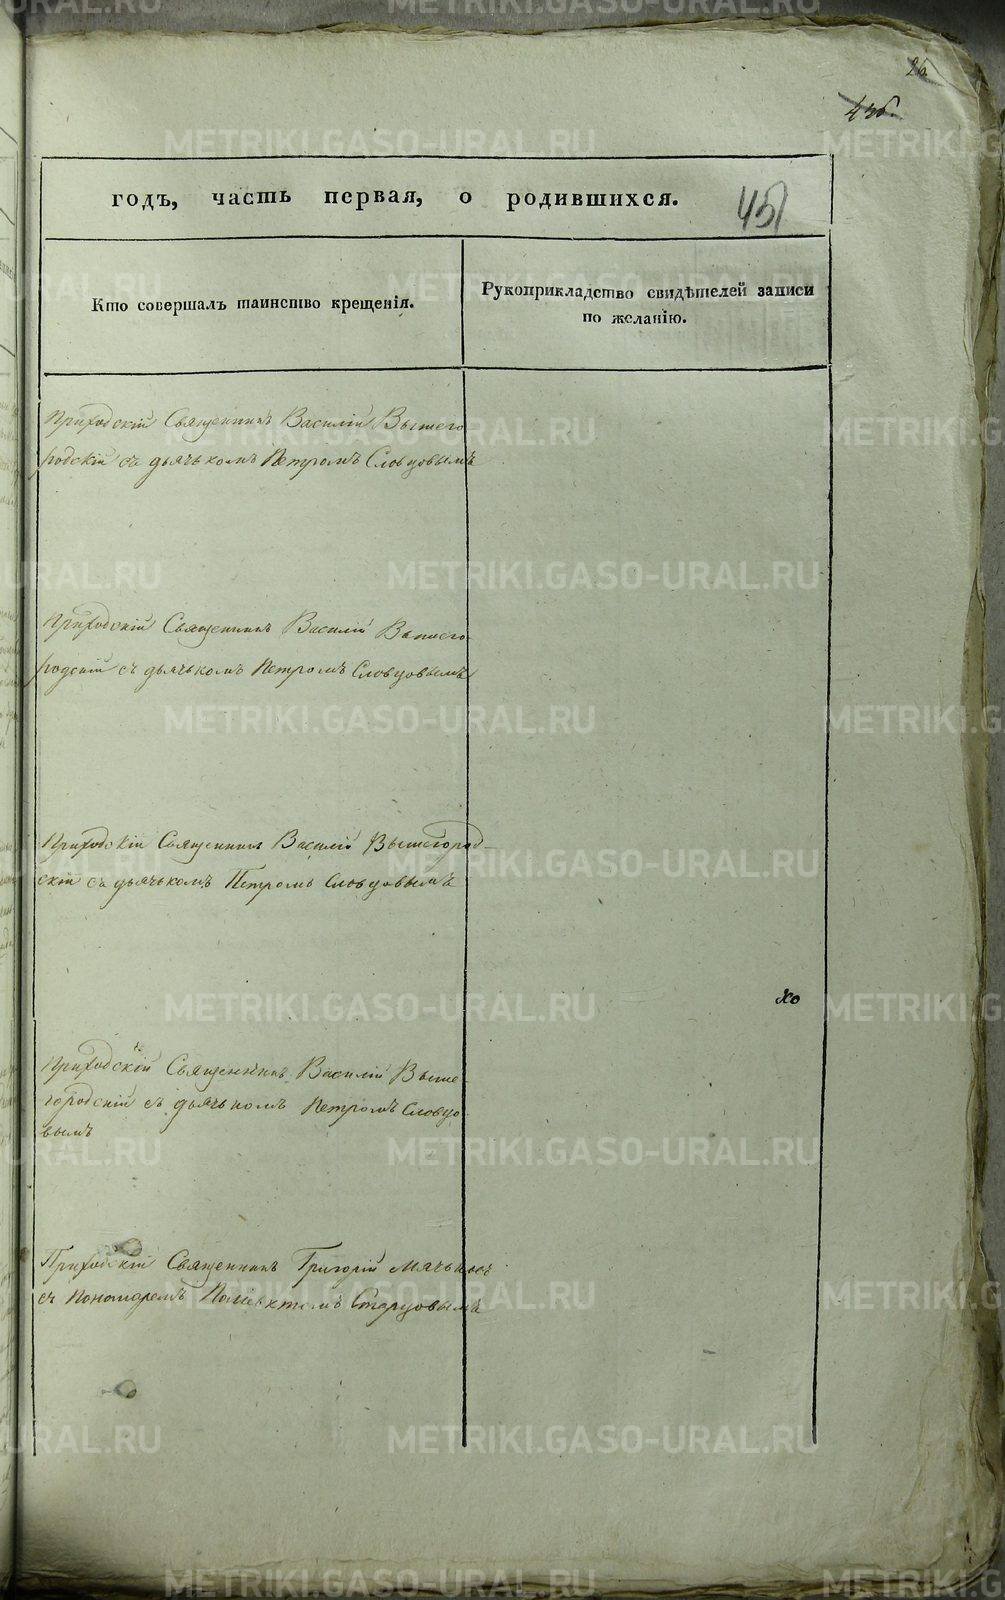 26
годъ, часть первая, о родившихся.
451
Кто совершалъ таинство крещенія.
Рукоприкладство свидѣтелей записи
по желанію.
Приходскій Священникъ Василій Вышего
родскій съ дьячькомъ Петромъ Словцовымъ
Приходскій Священникъ Василій Вышего
родскій съ дьячькомъ Петромъ Словцовымъ
Приходскій Священникъ Василій Вышегород
скій съ дьячькомъ Петромъ Словцовымъ
Приходскій Священникъ Василій Выше
городскій съ дьячькомъ Петромъ Словцо
вымъ
Приходскій Священникъ Григорій
съ Пономаремъ Старцовымъ
METRIKI.GASO-URAL.RU